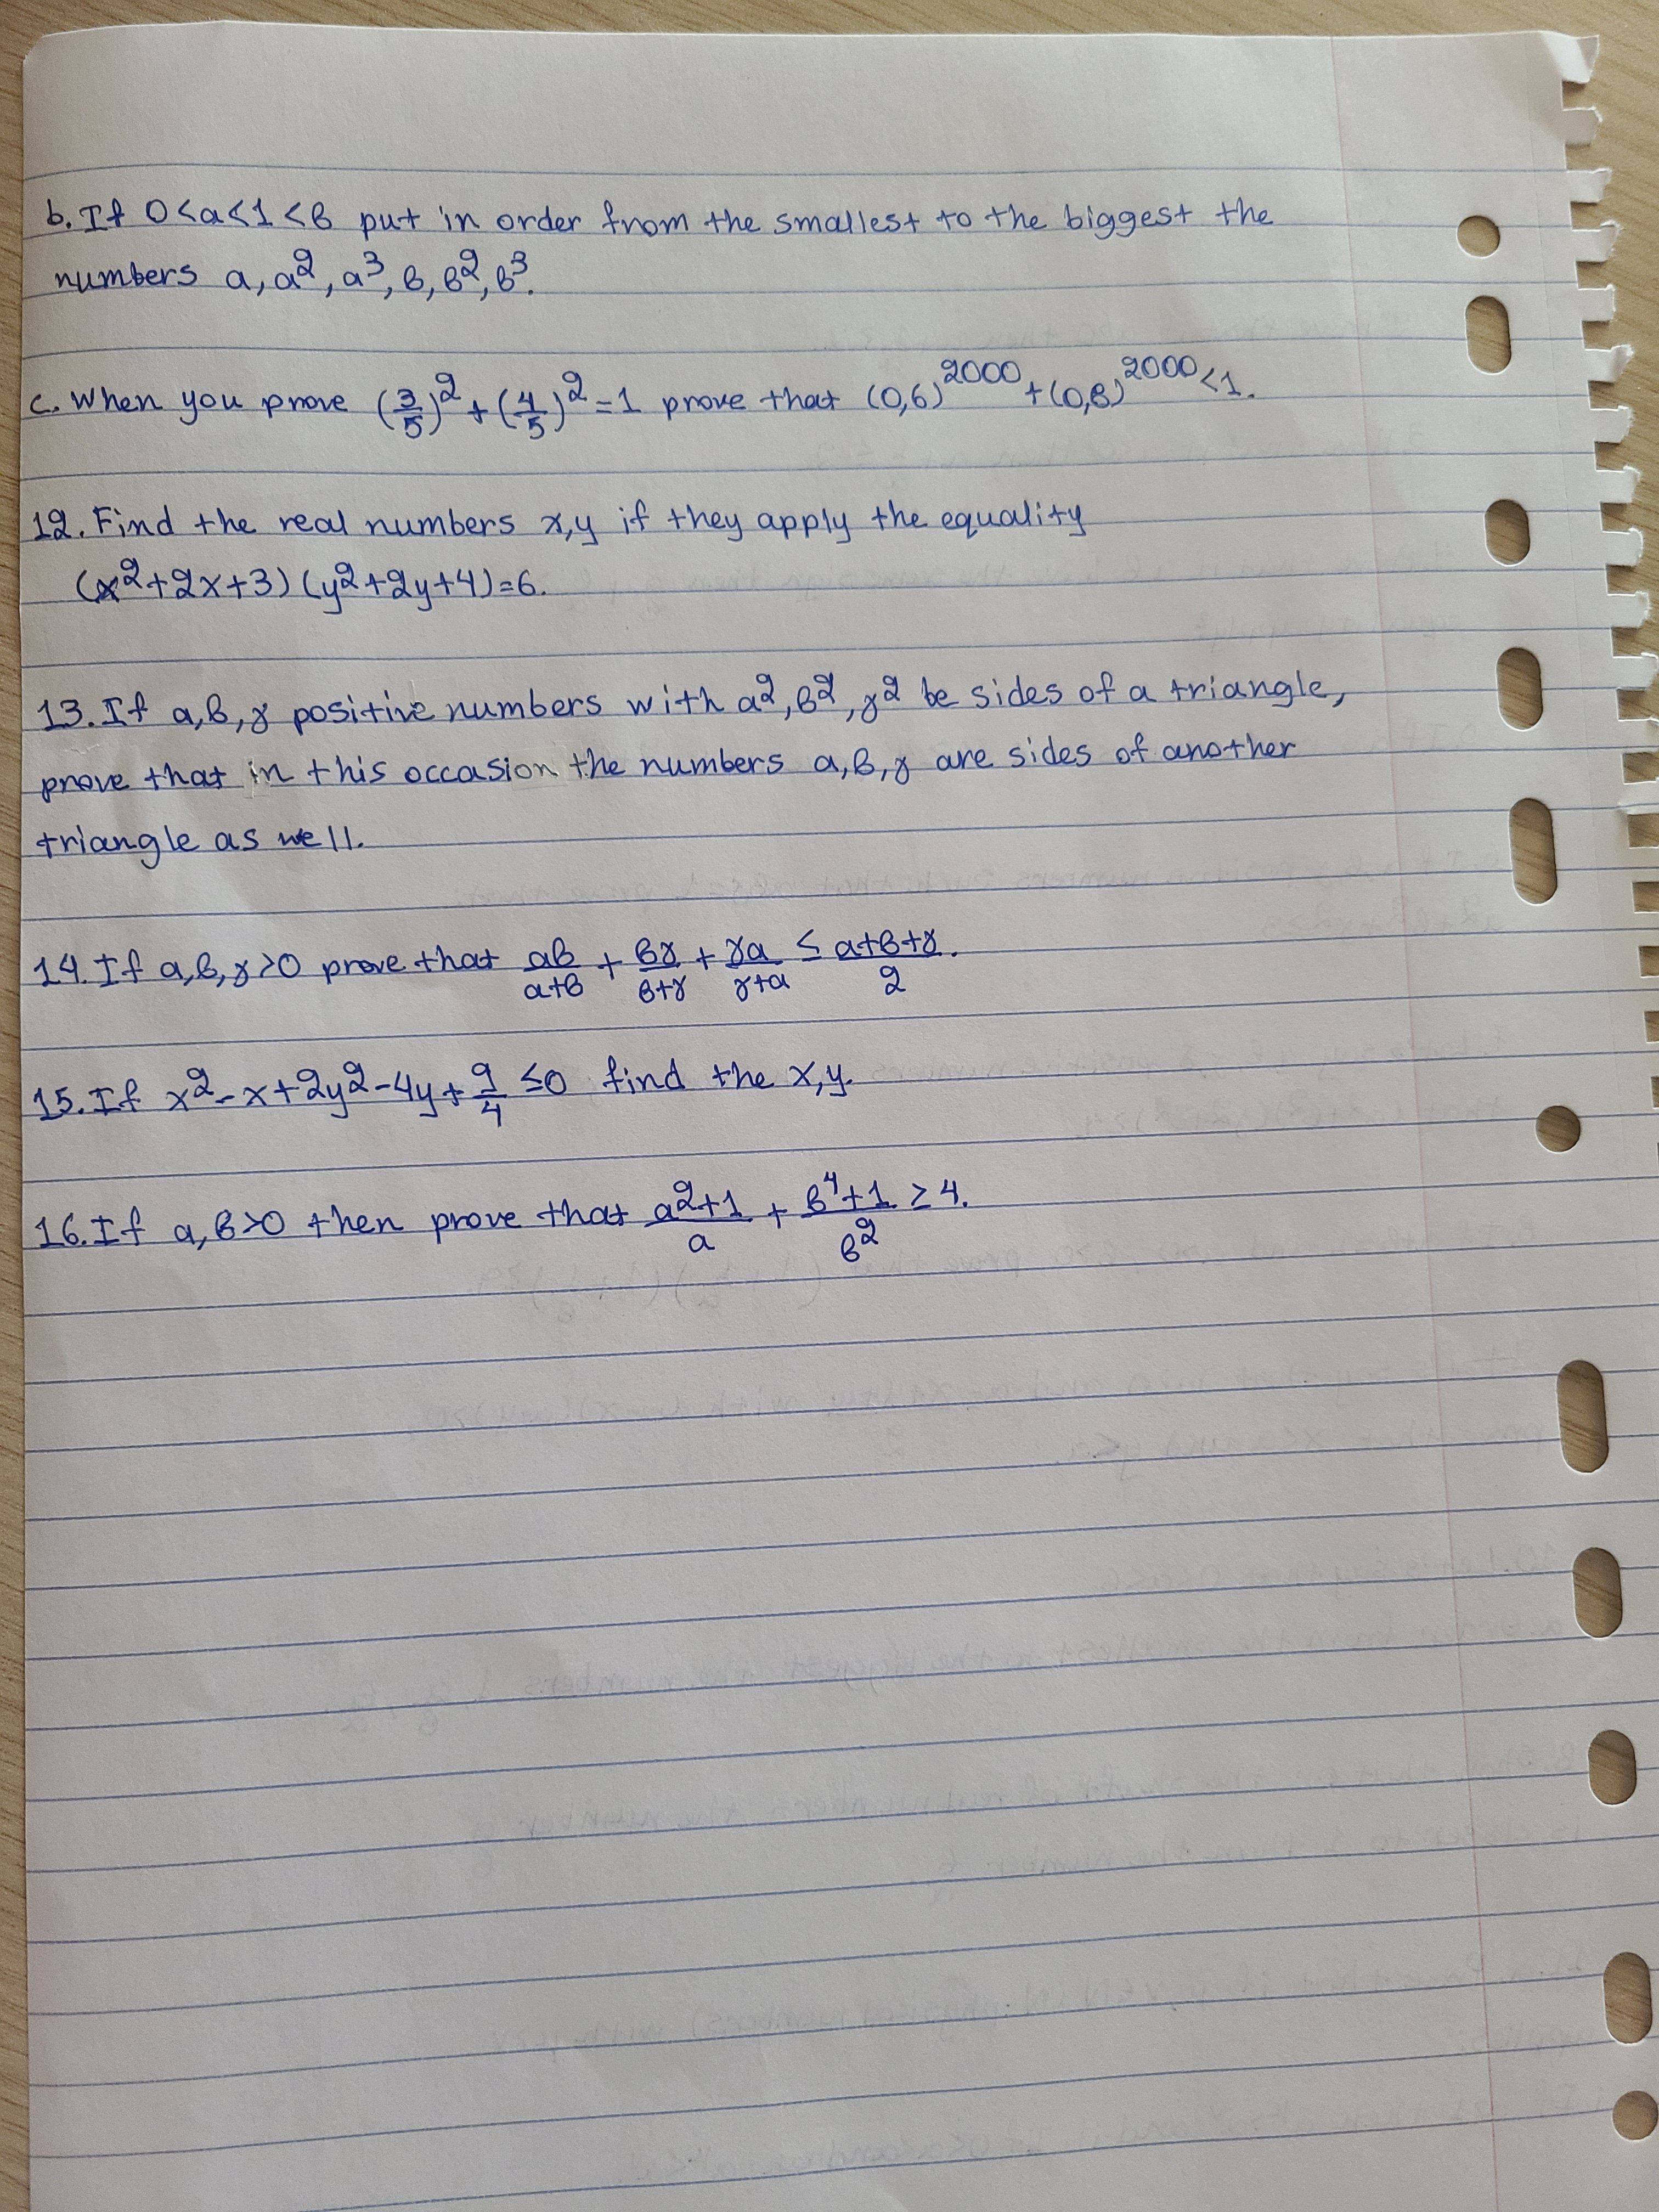 b. If 0<a<1<β put in order from the smallest to the biggest the
numbers a, a², a³, β, β², β³.
c. When you prove (3/5)²+(4/5)²=1 prove that (0,6)²⁰⁰⁰+(0,8)²⁰⁰⁰<1.
12. Find the real numbers x,y if they apply the equality
(x²+2x+3)(y²+2y+4)=6.
13. If a,β,γ positive numbers with a²,β²,γ² be sides of a triangle,
prove that in this occasion the numbers a,β,γ are sides of another
triangle as well.
14. If a,β,γ>0 prove that aβ/(a+β) + βγ/(β+γ) + γa/(γ+a) ≤ (a+β+γ)/2.
15. If x²-x+2y²-4y+9/4 ≤0 find the x,y.
16. If a,β>0 then prove that (a²+1)/a + (β⁴+1)/β² ≥ 4.